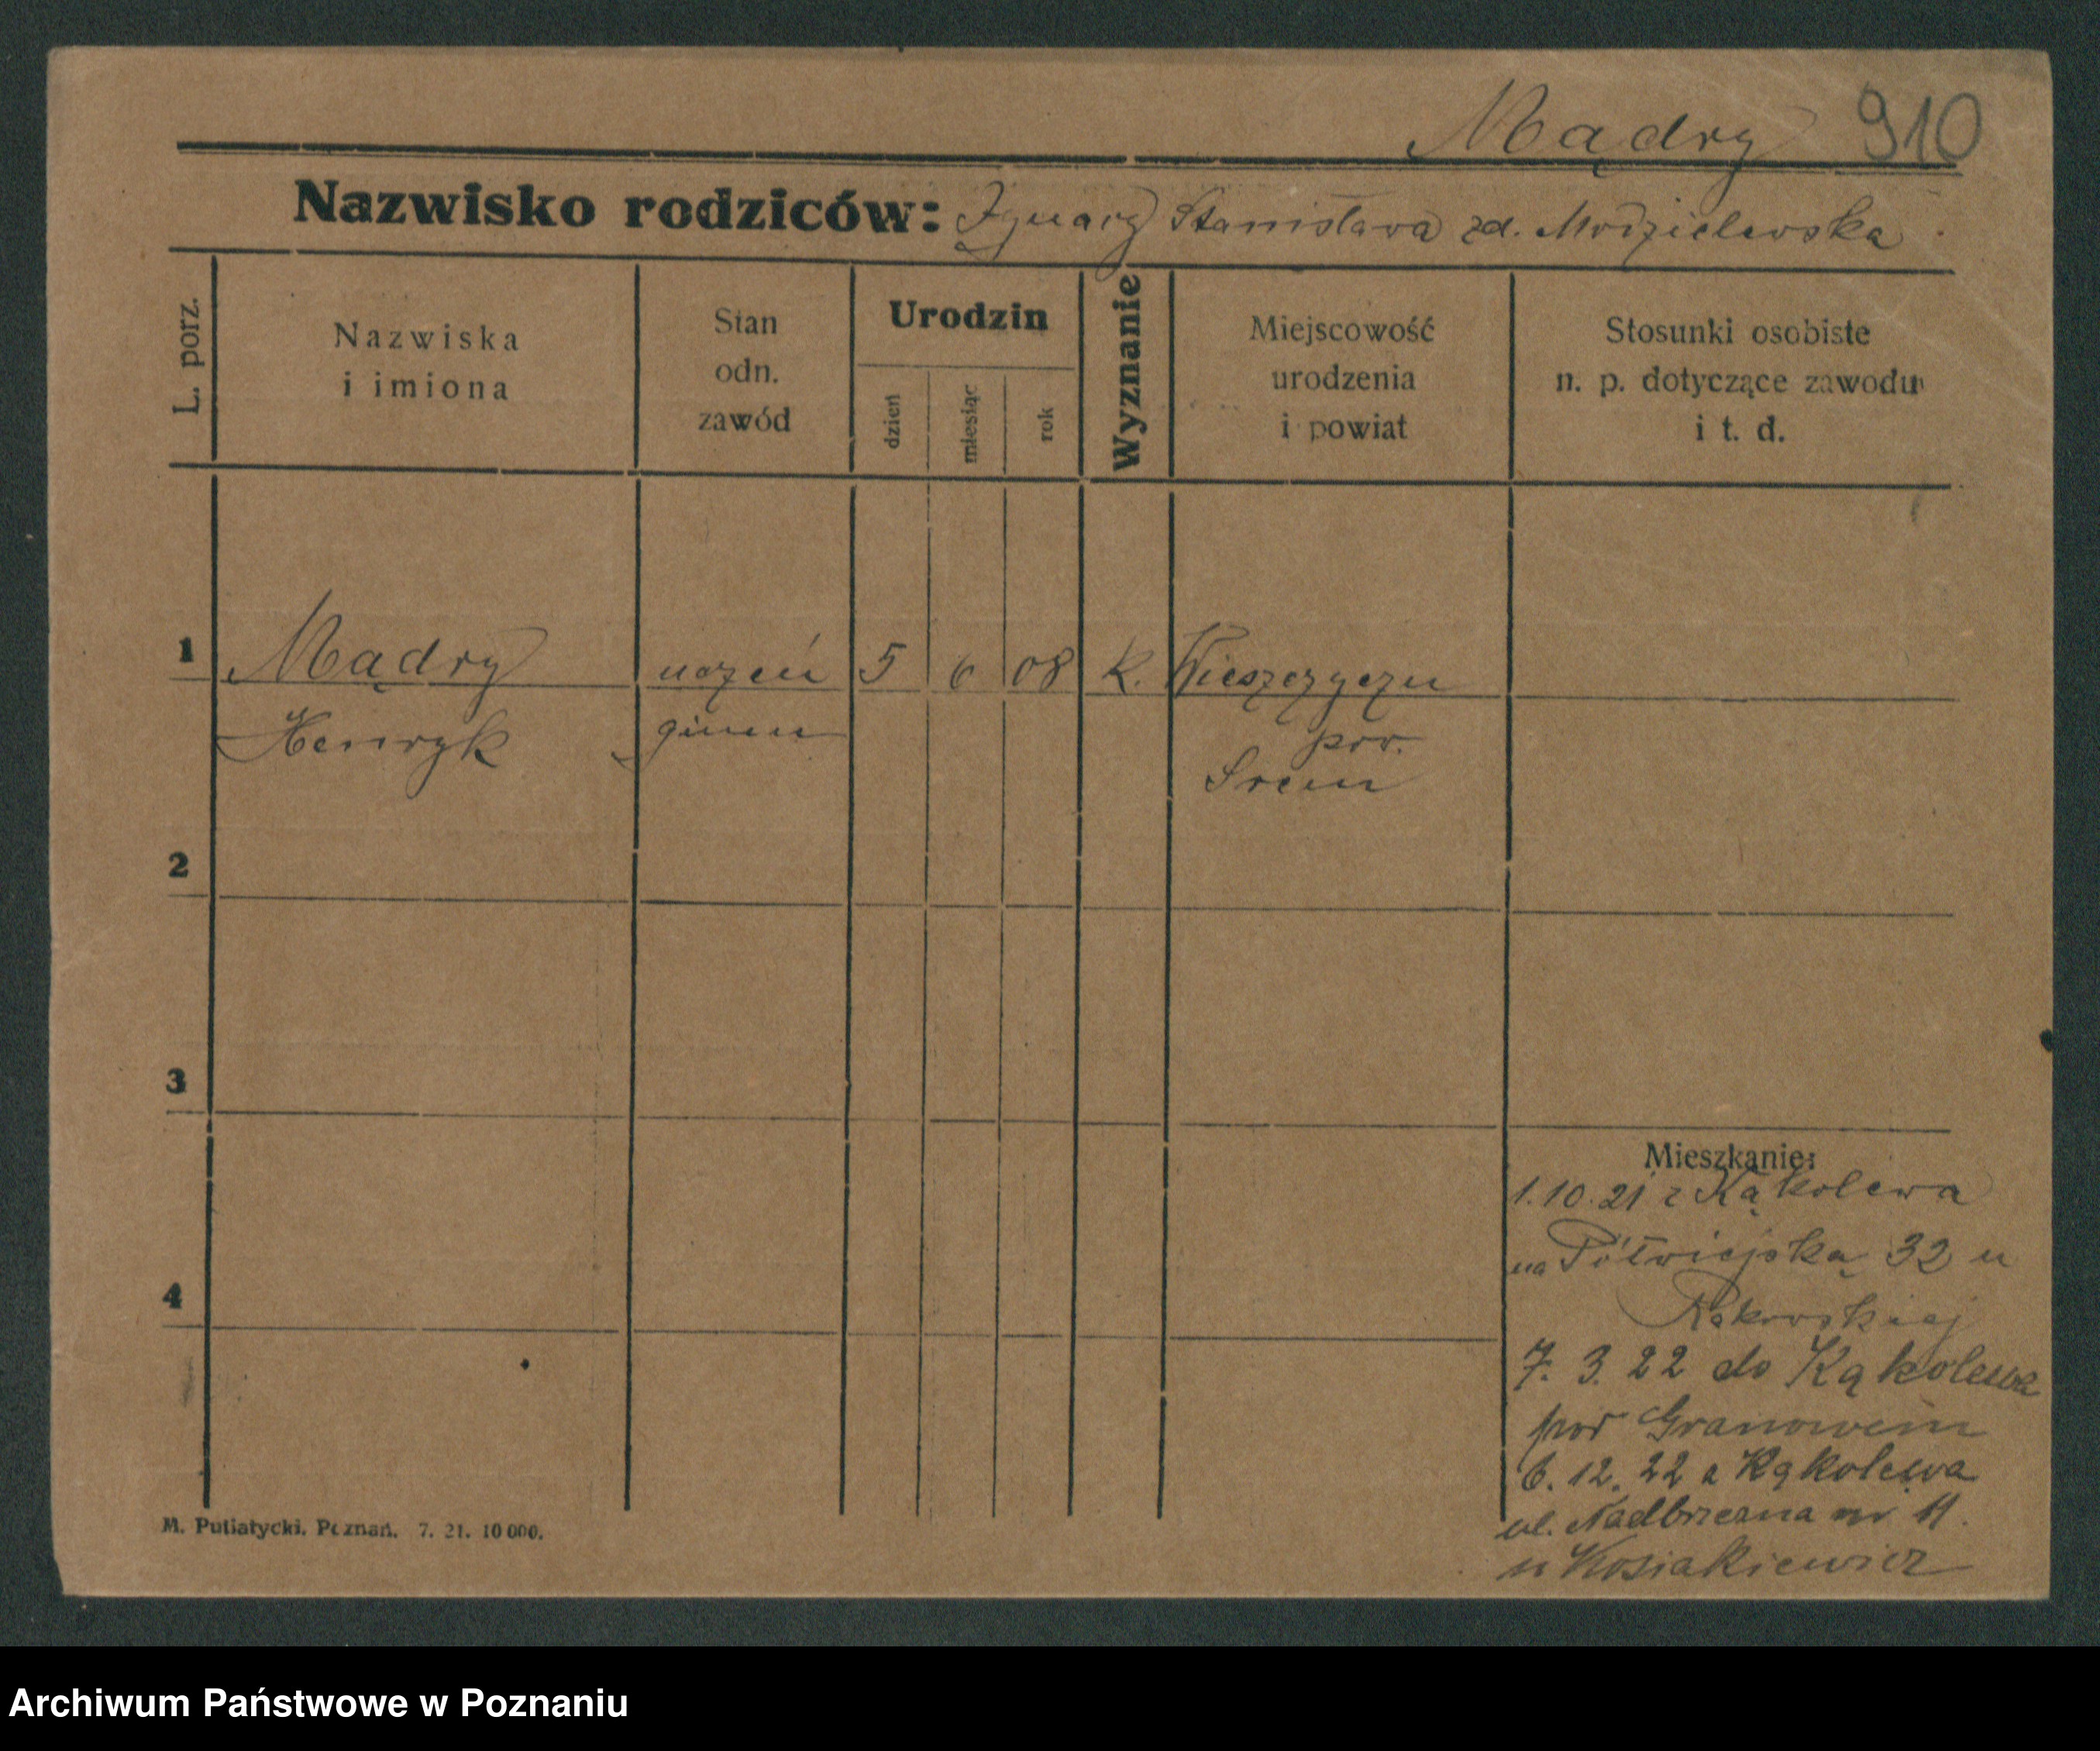 Mądry 910
Nazwisko rodziców: Ignacy Stanisława zd. Modzielewska
L. porz.
Nazwiska
i imiona
Stan
odn.
zawód
Urodzin
dzień
miesiąc
rok
Wyznanie
Miejscowość
urodzenia
i powiat
Stosunki osobiste
n. p. dotyczące zawodu
i t. d.
1 Mądry uczeń 5 6 08 k. Wieszczyczyn
Henryk gimn
pow.
Śrem
2
3
4
Mieszkanie:
1.10.21 z Kąkolewa
na Półwiejską 32 u
Rakowskiej
7. 3. 22 do Kąkolewa
pow Granowem
6. 12. 22 z Kąkolewa
ul. Nadbrzezna nr 11.
u Kosiakiewicz
M. Putiatycki. Poznań. 7. 21. 10 000.
Archiwum Państwowe w Poznaniu